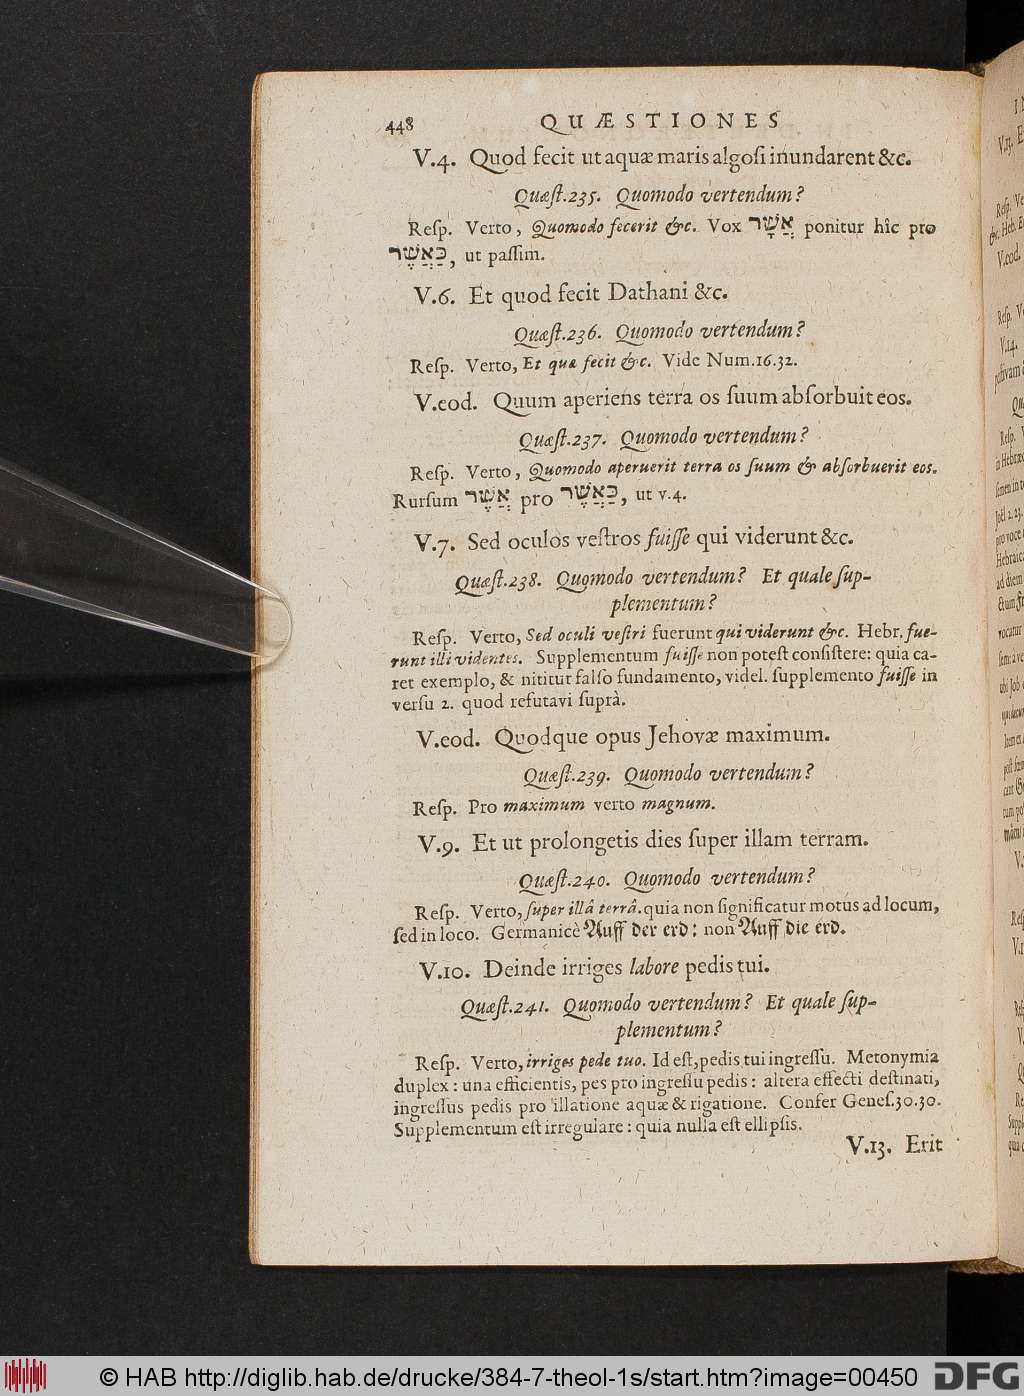 448 QUÆSTIONES
V.4. Quod fecit ut aquæ maris algosi inundarent &c.
Quæſt.235. Quomodo vertendum?
Reſp. Verto, Quomodo fecerit &c. Vox אֲשָׁר ponitur hîc pro
כַּאֲשֶׁר, ut paſſim.
V.6. Et quod fecit Dathani &c.
Quæſt.236. Quomodo vertendum?
Reſp. Verto, Et quæ fecit &c. Vide Num.16.32.
V.eod. Quum aperiens terra os ſuum abſorbuit eos.
Quæſt.237. Quomodo vertendum?
Reſp. Verto, Quomodo aperuerit terra os ſuum & abſorbuerit eos.
Rurſum אֲשֶׁר pro כַּאֲשֶׁר, ut v.4.
V.7. Sed oculos veſtros fuiſſe qui viderunt &c.
Quæſt.238. Quomodo vertendum? Et quale ſup-
plementum?
Reſp. Verto, Sed oculi veſtri fuerunt qui viderunt &c. Hebr. fue-
runt illi videntes. Supplementum fuiſſe non poteſt conſiſtere: quia ca-
ret exemplo, & nititur falſo fundamento, videl. ſupplemento fuiſſe in
verſu 2. quod refutavi ſuprà.
V.eod. Quodque opus Jehovæ maximum.
Quæſt.239. Quomodo vertendum?
Reſp. Pro maximum verto magnum.
V.9. Et ut prolongetis dies ſuper illam terram.
Quæſt.240. Quomodo vertendum?
Reſp. Verto, ſuper illâ terrâ. quia non ſignificatur motus ad locum,
ſed in loco. Germanicè Auff der erd: non Auff die erd.
V.10. Deinde irriges labore pedis tui.
Quæſt.241. Quomodo vertendum? Et quale ſup-
plementum?
Reſp. Verto, irriges pede tuo. Id eſt, pedis tui ingreſſu. Metonymia
duplex: una efficientis, pes pro ingreſſu pedis: altera effecti deſtinati,
ingreſſus pedis pro illatione aquæ & rigatione. Confer Geneſ.30.30.
Supplementum eſt irregulare: quia nulla eſt ellipſis.
V.13. Erit
© HAB http://diglib.hab.de/drucke/384-7-theol-1s/start.htm?image=00450
DFG